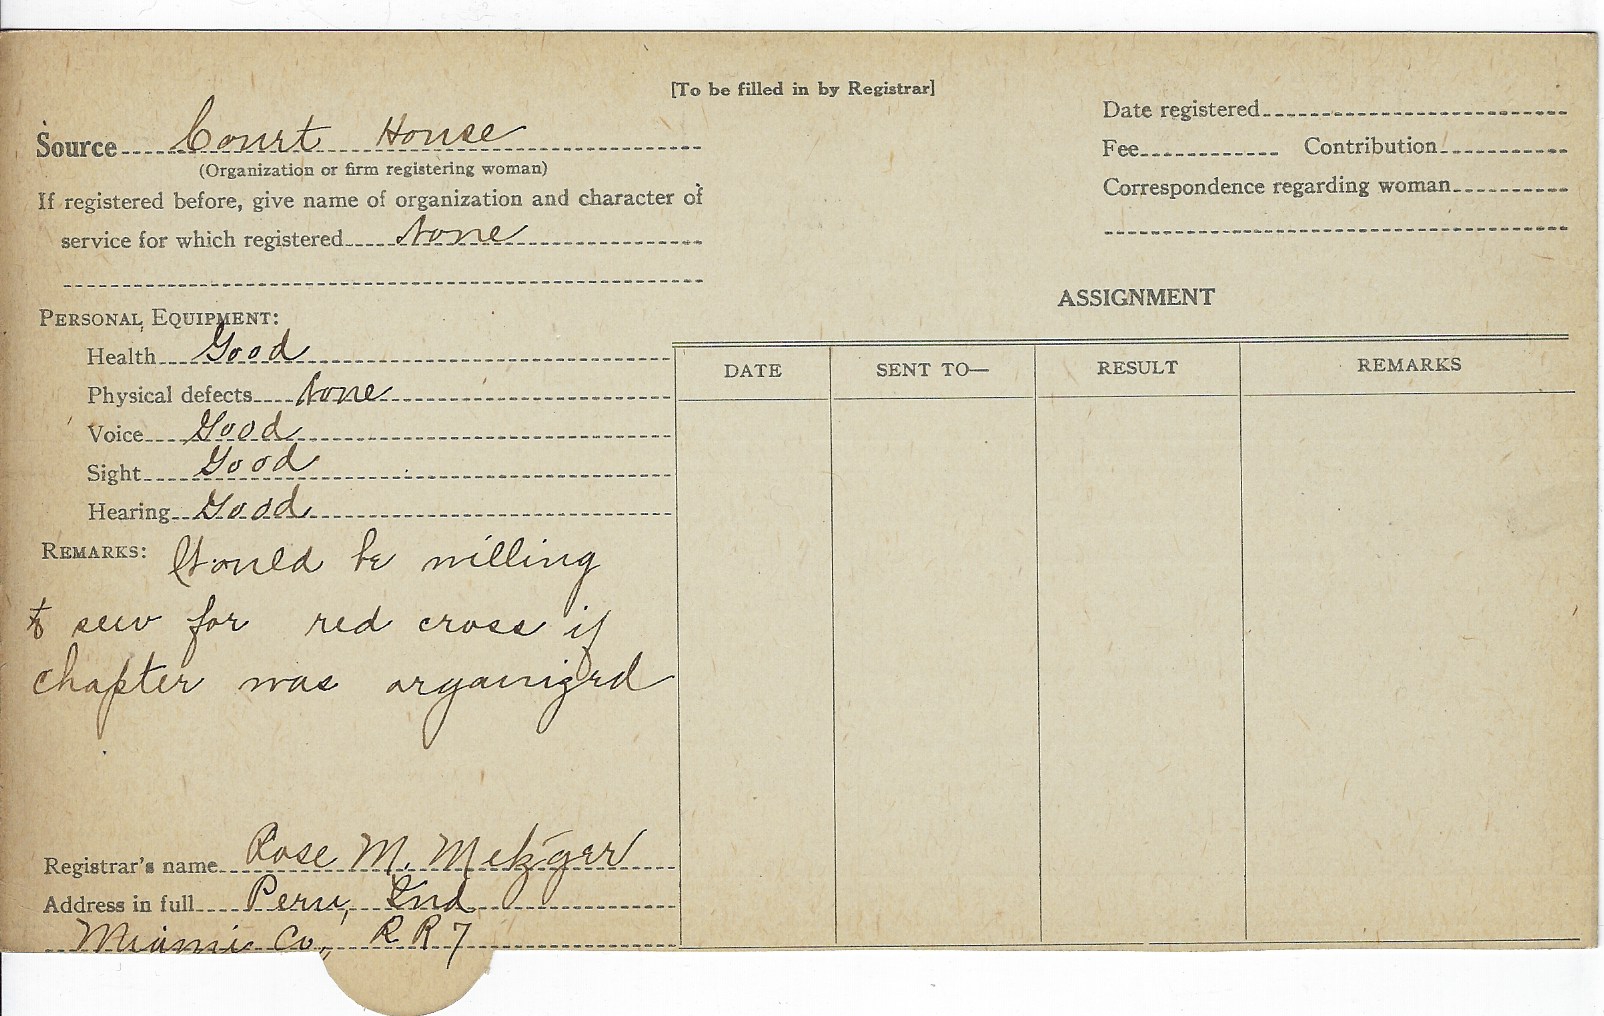 [To be filled in by Registrar]
Source Court House
(Organization or firm registering woman)
If registered before, give name of organization and character of
service for which registered None
Date registered
Fee Contribution
Correspondence regarding woman
PERSONAL EQUIPMENT:
Health Good
Physical defects None
Voice Good
Sight Good
Hearing Good
REMARKS: Would be willing
to sew for red cross if
chapter was organized
Registrar's name Rose M. Metzger
Address in full Peru, Ind
Miami Co., R R 7
ASSIGNMENT
DATE SENT TO— RESULT REMARKS